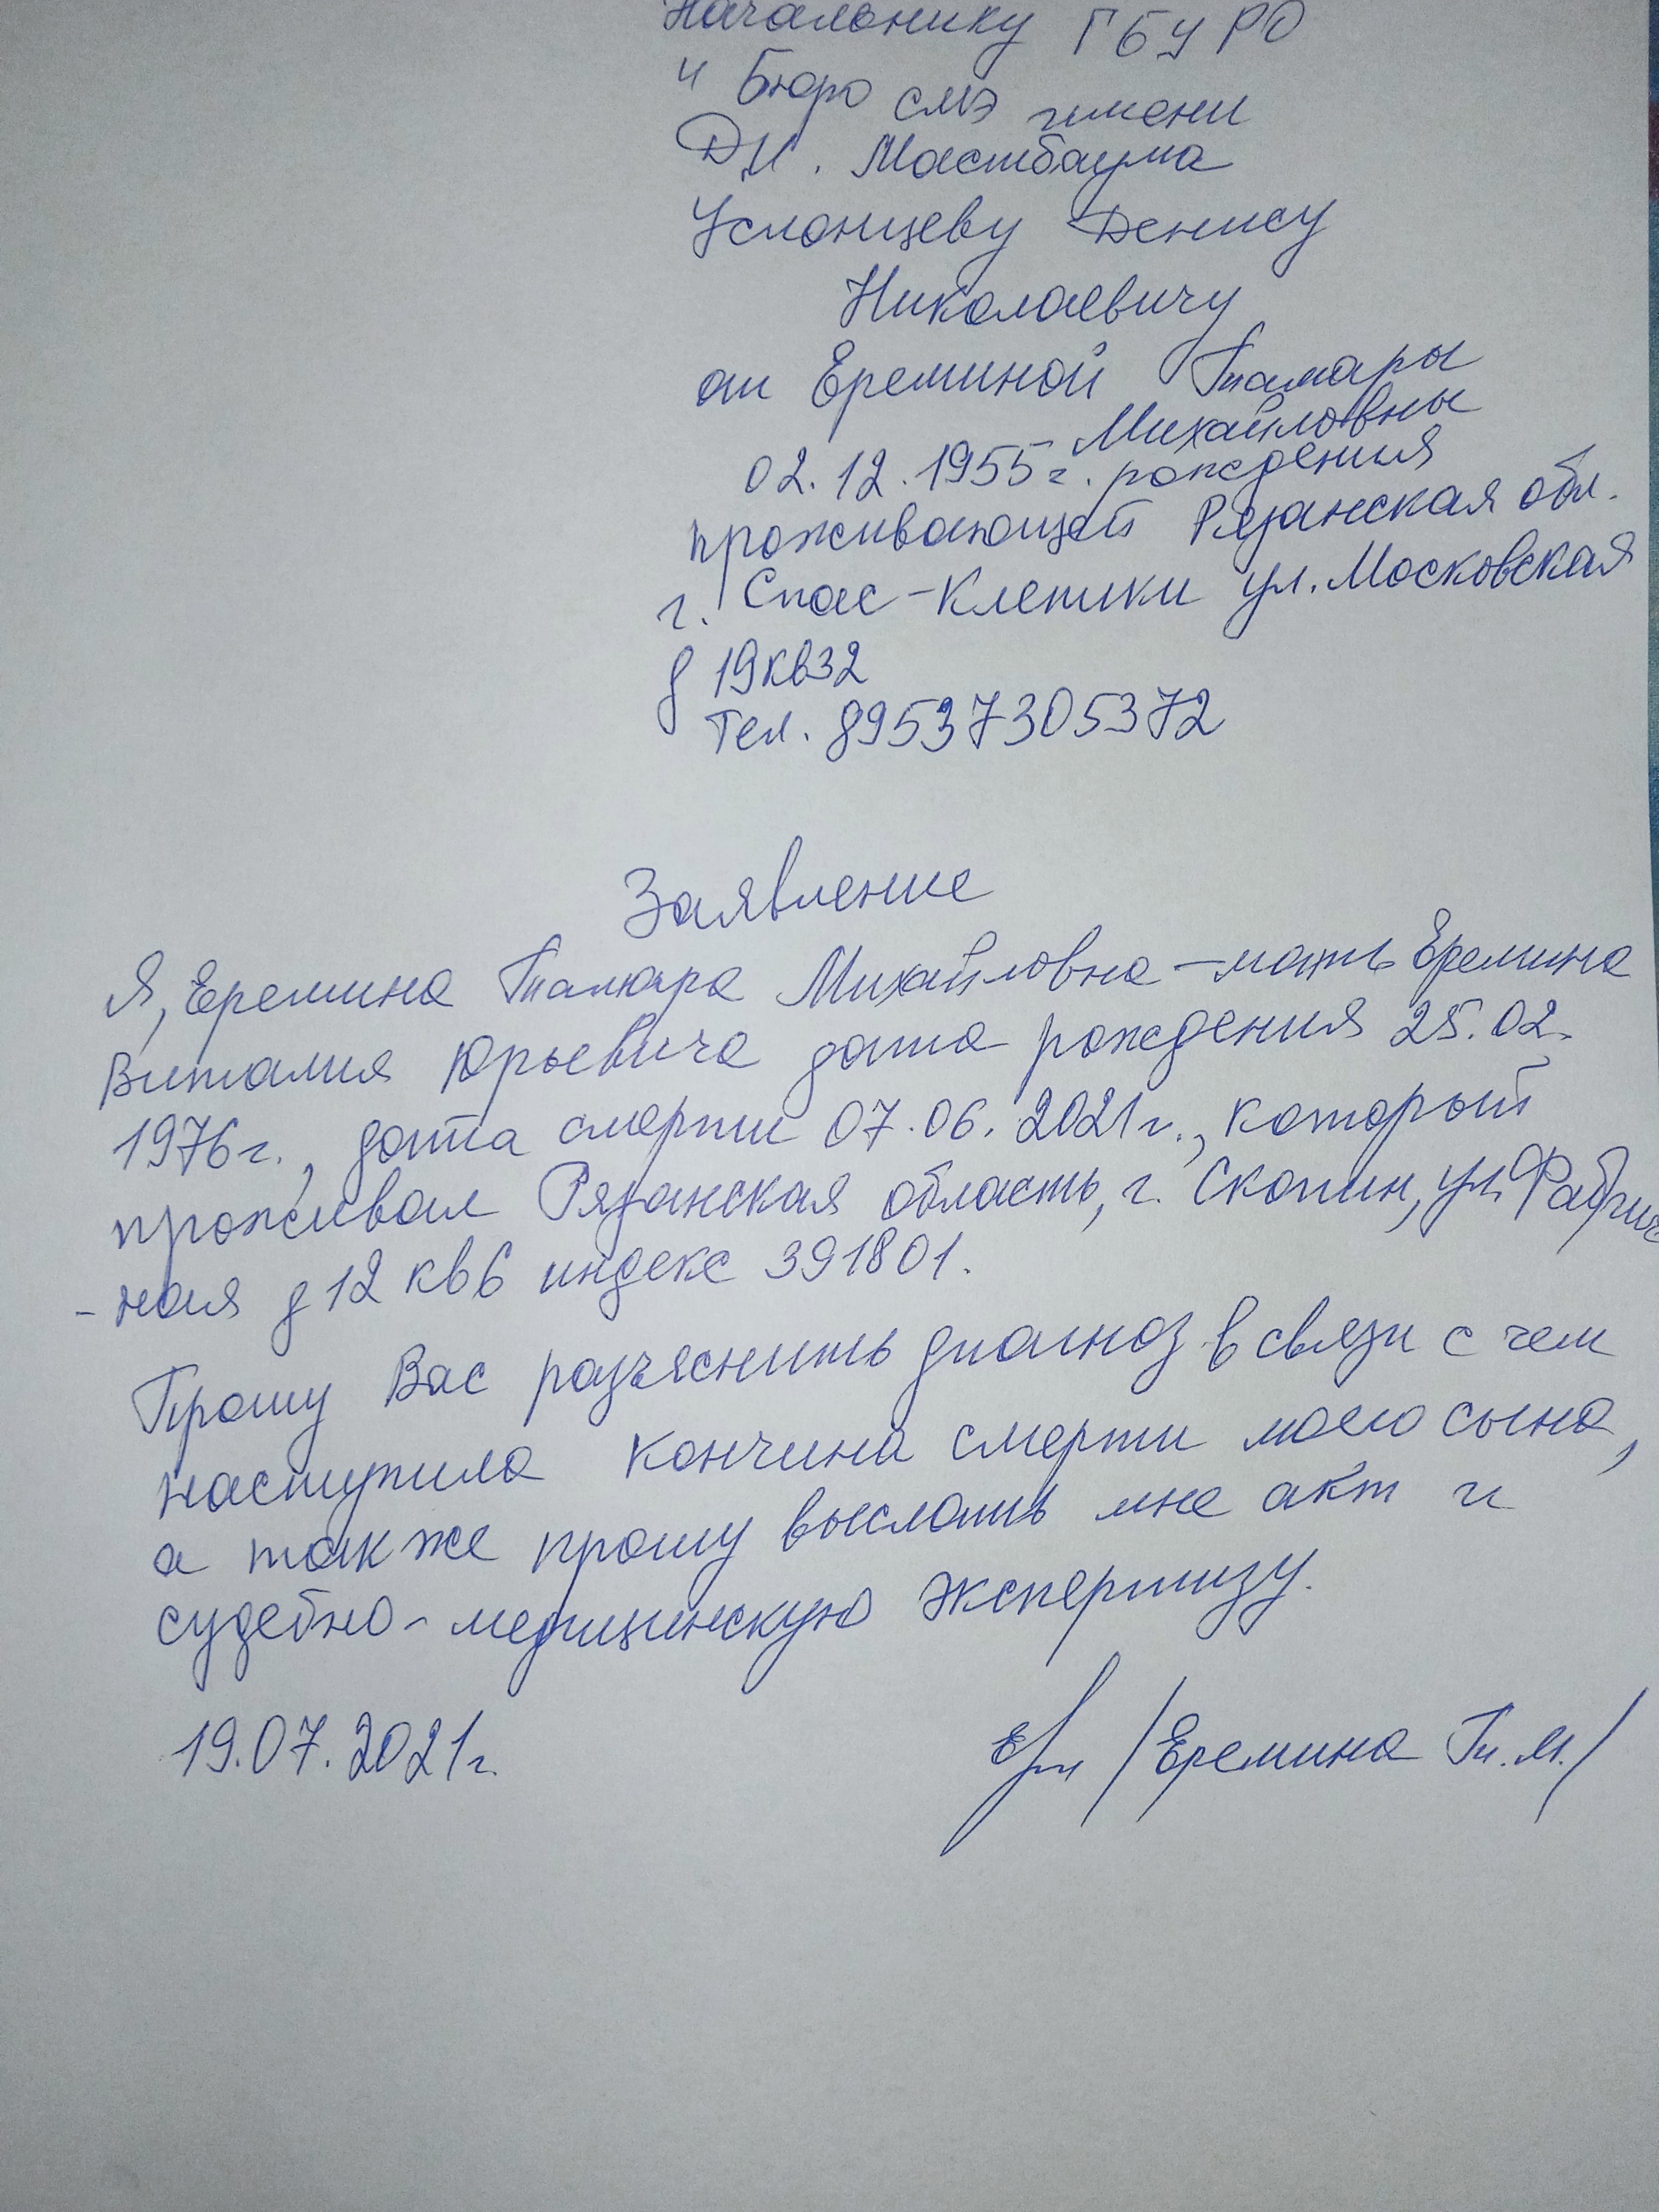 Начальнику ГБУ РО
" Бюро смэ имени
Д.И. Мастбаума
Услонцеву Денису
Николаевичу
от Ереминой Тамары
Михайловны
02.12.1955г. рождения
проживающей Рязанская обл.
г. Спас-Клепики ул. Московская
д 19 кв 32
Тел. 89537305372
Заявление
Я, Еремина Тамара Михайловна - мать Еремина
Виталия Юрьевича дата рождения 25.02.
1976г., дата смерти 07.06.2021г., который
проживал Рязанская область, г. Скопин, ул. Фабрич
-ная д 12 кв 6 индекс 391801.
Прошу Вас разъяснить диагноз в связи с чем
наступила кончина смерти моего сына,
а также прошу выслать мне акт и
судебно-медицинскую экспертизу.
19.07.2021г.
/Еремина Т.М./